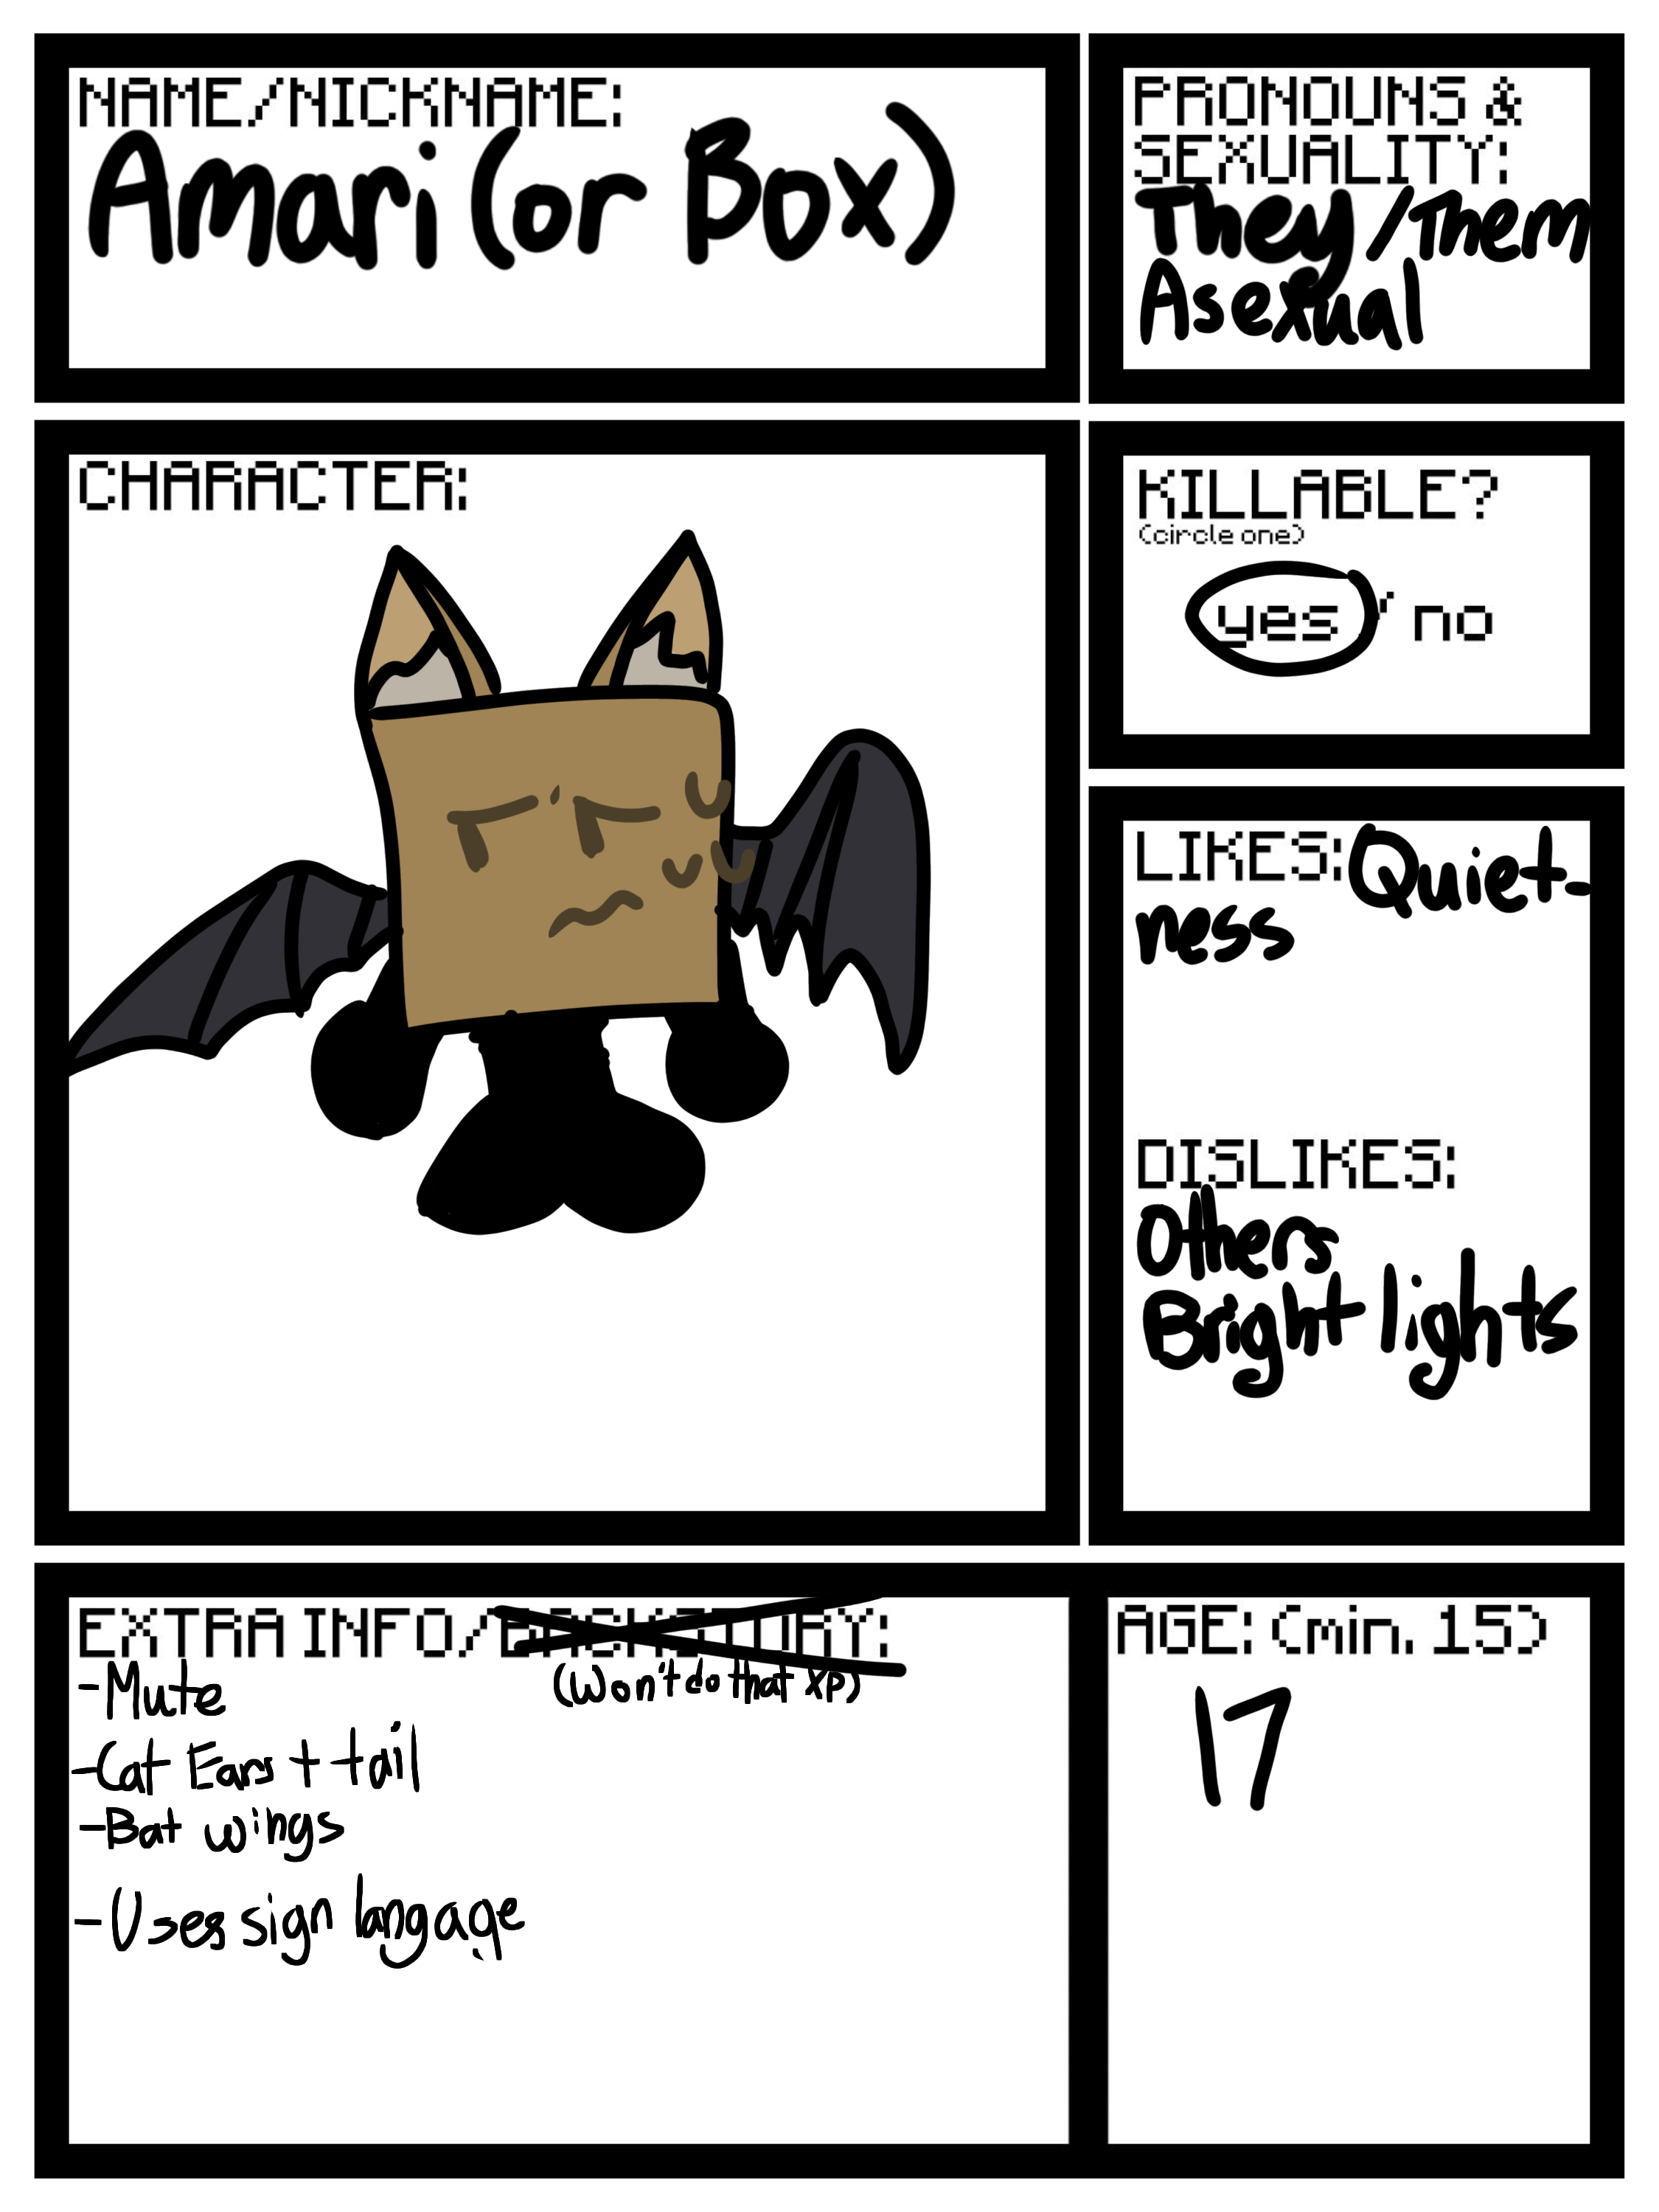 NAME/NICKNAME:
Amari (or Box)
PRONOUNS &
SEXUALITY:
They/Them
Asexual
CHARACTER:
KILLABLE?
(circle one)
yes / no
LIKES: Quiet-
ness
DISLIKES:
Others
Bright lights
EXTRA INFO/BACKSTORY:
(Won't do that XP)
-Mute
-Cat Ears + tail
-Bat wings
-Uses sign langage
AGE: (min. 15)
17